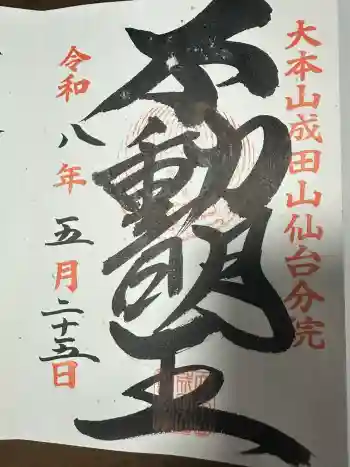 大本山成田山仙台分院
不動明王
令和八年五月二十五日